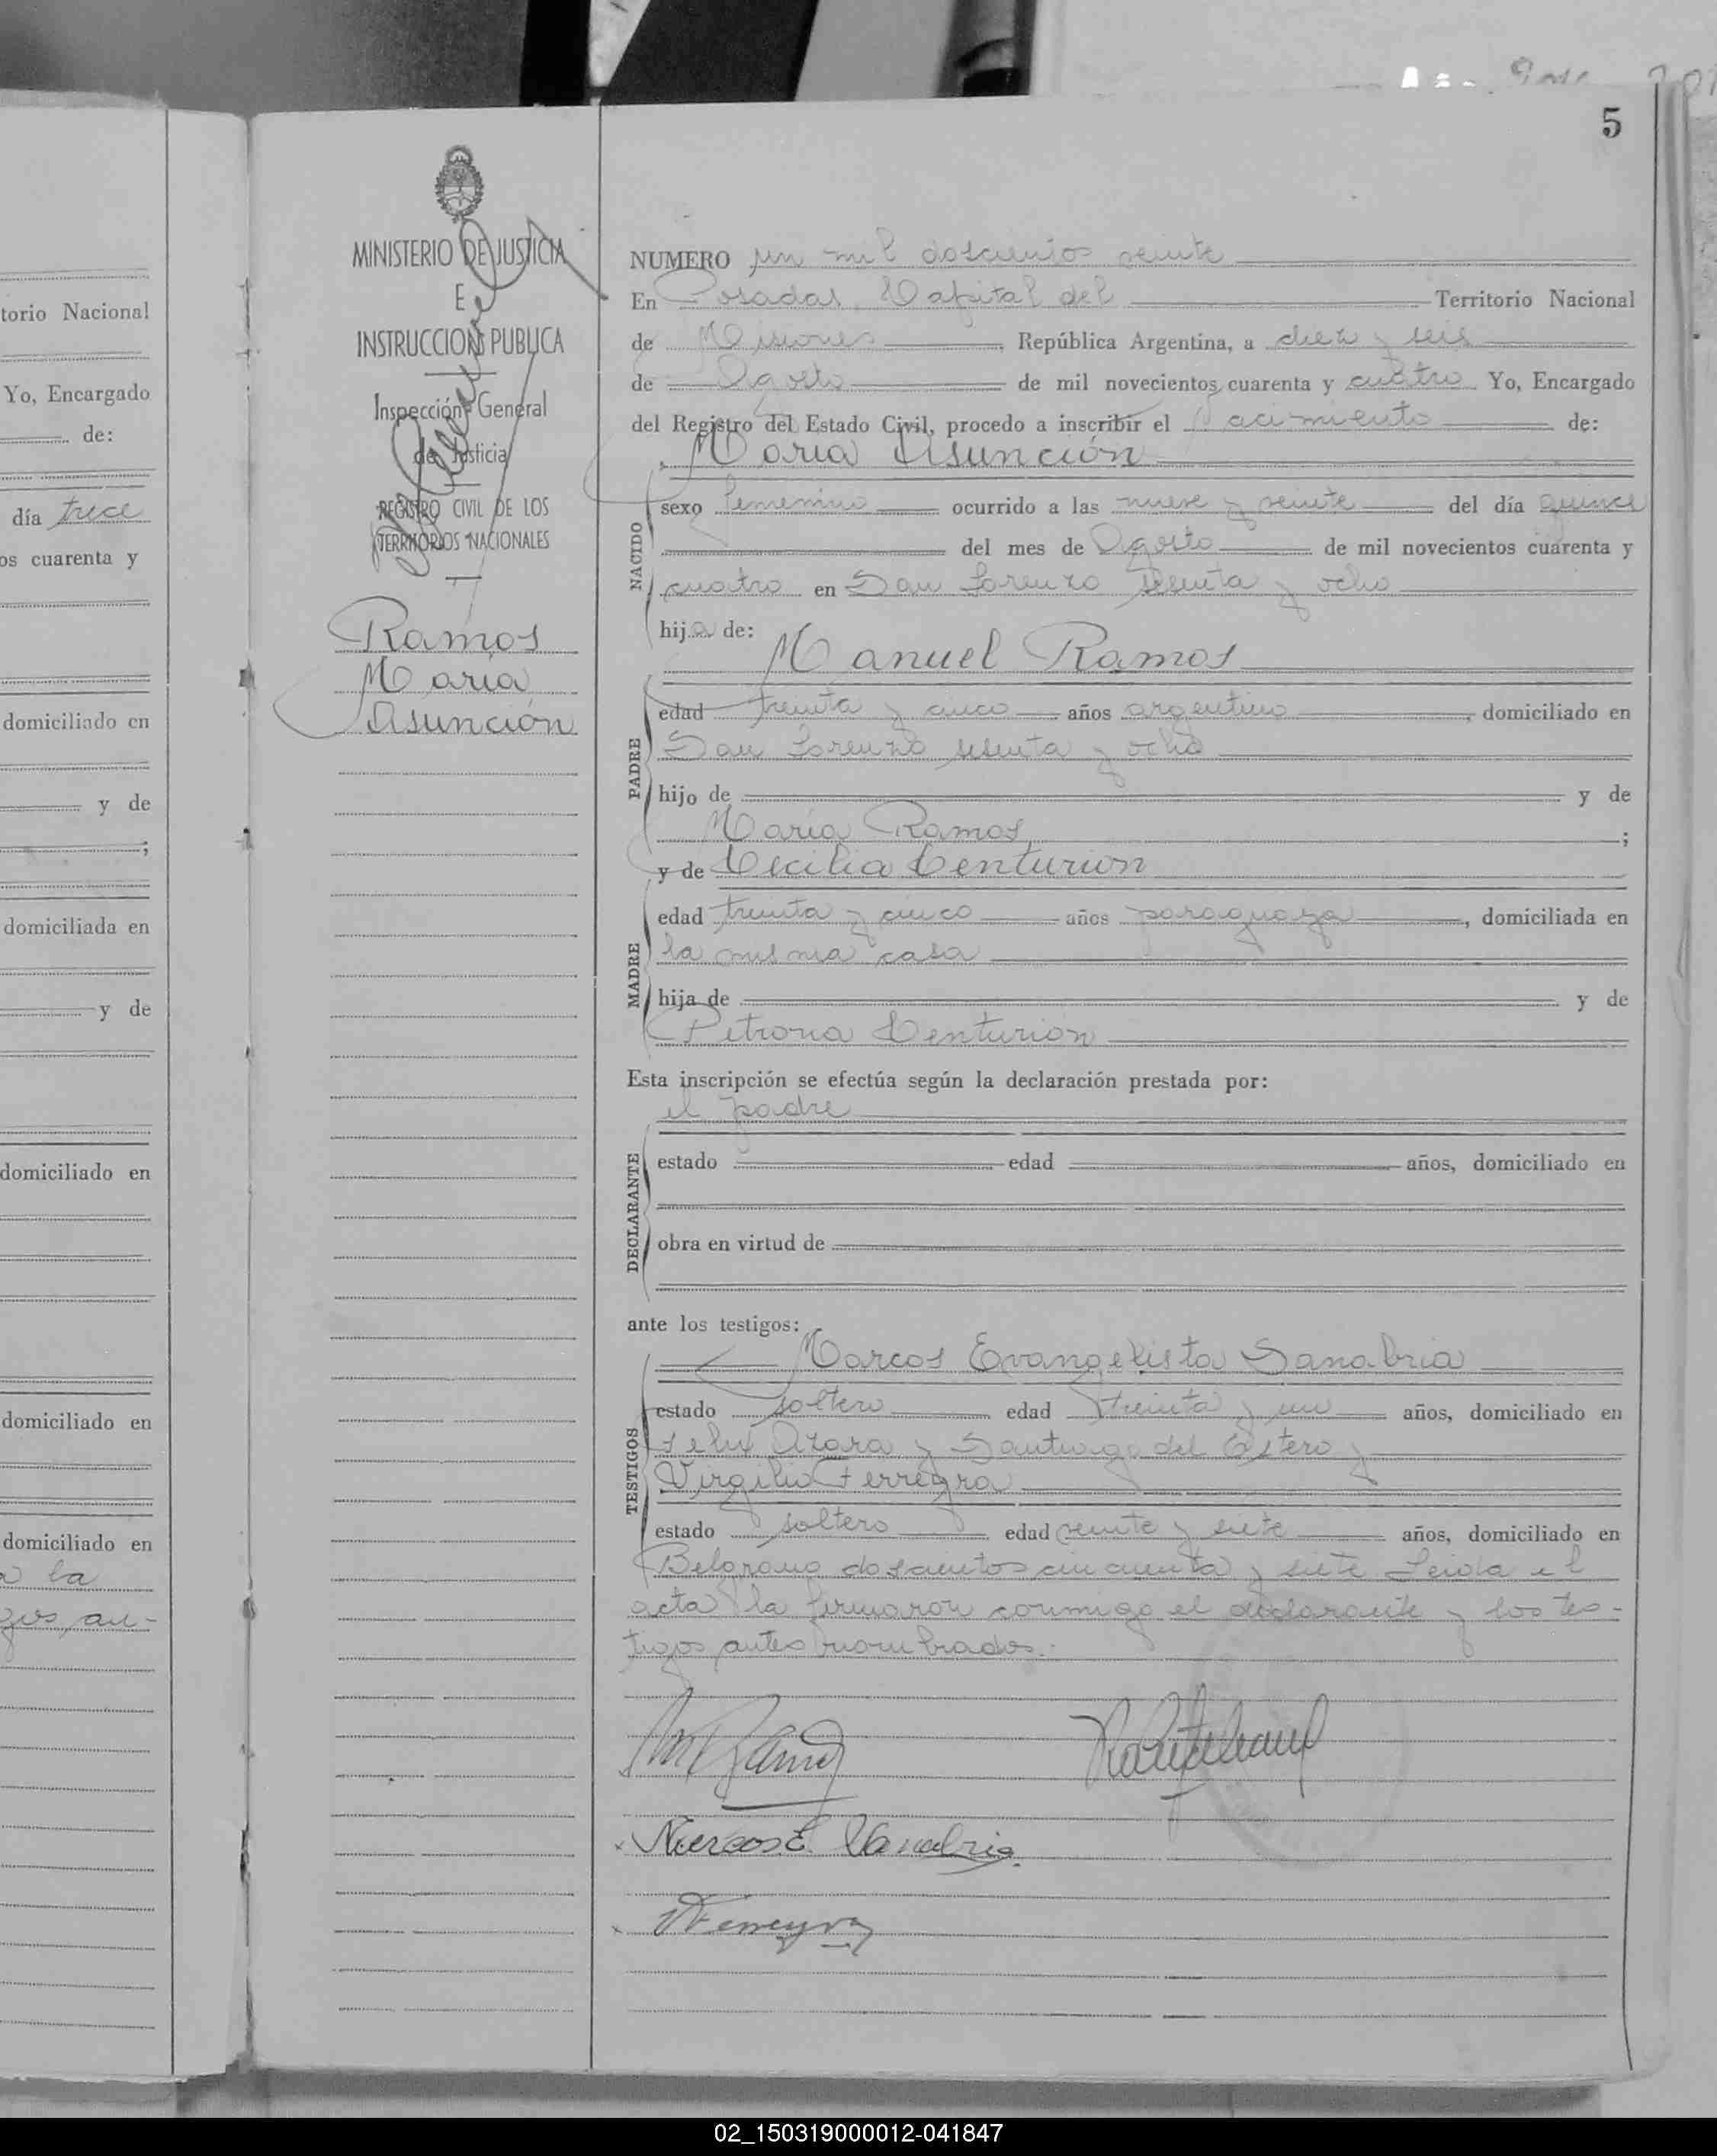 5
torio Nacional
Yo, Encargado
de:
día trece
os cuarenta y
domiciliado en
y de
;
domiciliada en
y de
domiciliado en
domiciliado en
domiciliado en
a la
gos an-
MINISTERIO DE JUSTICIA
E
INSTRUCCION PUBLICA
Inspección General
de Justicia
REGISTRO CIVIL DE LOS
TERRITORIOS NACIONALES
Ramos
Maria
Asunción
NUMERO un mil doscientos veinte
En Posadas, Capital del Territorio Nacional
de Misiones, República Argentina, a diez y seis
de Agosto de mil novecientos cuarenta y cuatro Yo, Encargado
del Registro del Estado Civil, procedo a inscribir el Nacimiento de:
Maria Asunción
NACIDO
sexo femenino ocurrido a las nueve y veinte del día quince
del mes de Agosto de mil novecientos cuarenta y
cuatro en San Lorenzo sesenta y ocho
hija de:
Manuel Ramos
PADRE
edad treinta y cinco años argentino, domiciliado en
San Lorenzo sesenta y ocho
hijo de y de
María Ramos ;
y de Cecilia Centurión
MADRE
edad treinta y cinco años paraguaya, domiciliada en
la misma casa
hija de y de
Petrona Centurión
Esta inscripción se efectúa según la declaración prestada por:
el padre
DECLARANTE
estado edad años, domiciliado en
obra en virtud de
ante los testigos:
Marcos Evangelista Sanabria
TESTIGOS
estado soltero edad treinta y un años, domiciliado en
Felix Azara y Santiago del Estero y
Virgilio Ferreyra
estado soltero edad veinte y siete años, domiciliado en
Belgrano doscientos cincuenta y siete Leida el
acta la firmaron conmigo el declarante y los tes-
tigos antes nombrados.
M Ramos
Marcos E. Sanabria
V Ferreyra
02_150319000012-041847